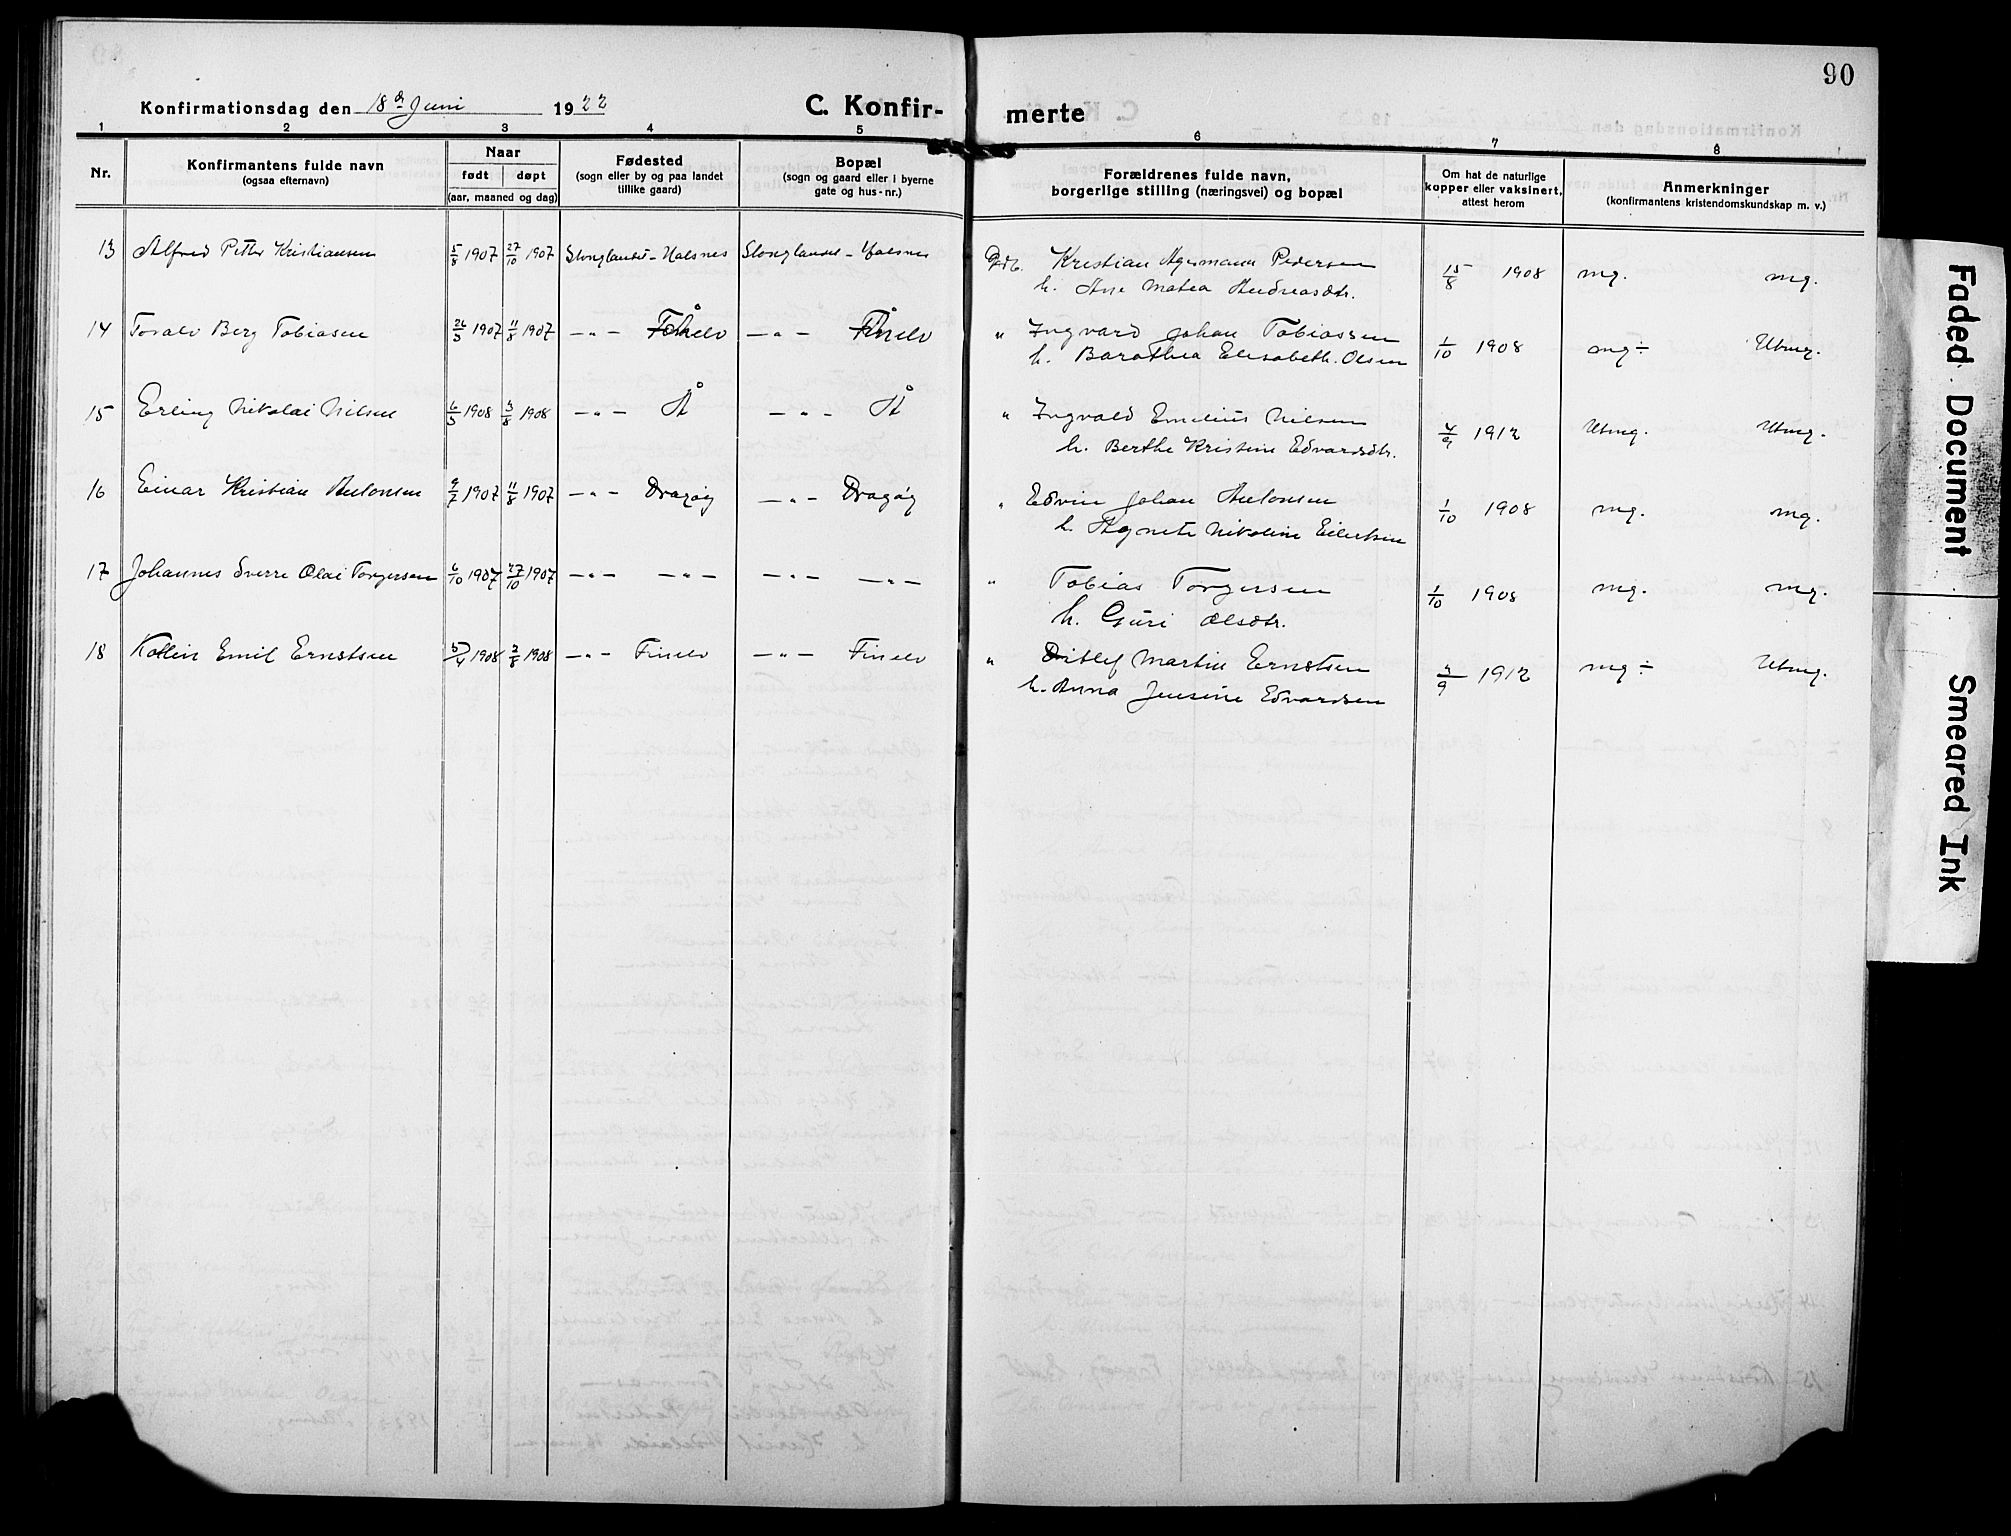 90
Konfirmationsdag den 18de Juni 1922 C. Konfir- merte
1 2 3 4 5 6 7 8
Nr. Konfirmantens fulde navn (ogsaa efternavn) Naar født døpt (aar, maaned og dag) Fødested (sogn eller by og paa landet tillike gaard) Bopæl (sogn og gaard eller i byerne gate og hus-nr.) Forældrenes fulde navn, borgerlige stilling (næringsvei) og bopæl Om hat de naturlige kopper eller vaksinert, attest herom Anmerkninger (konfirmantens kristendomskundskap m. v.)
13 Alfred Petter Kristiansen 5/8 1907 27/10 1907 Stonglandet - Valsnes Stonglandet - Valsnes Gdb. Kristian Agermann Pedersen 15/8 1908 mg. mg.
h. Ane Matea Andreasdtr.
14 Toralv Berg Tobiasen 26/5 1907 11/8 1907 — " — Finelv — " — Finelv " Ingvard Johan Tobiassen 1/10 1908 mg ÷ Utmg.
h. Barothea Elisabeth Olsen
15 Erling Nikolai Nilsen 6/5 1908 3/8 1908 — " — Å — " — Å " Ingvald Emelius Nilsen 4/9 1912 Utmg. Utmg.
h. Berthe Kristine Edvardsdtr.
16 Einar Kristian Antonsen 9/7 1907 11/8 1907 — " — Dragøy — " — Dragøy " Edvin Johan Antonsen 1/10 1908 mg. mg.
h. Agnete Nikoline Eilertsen
17 Johannes Sverre Olai Torgersen 6/10 1907 27/10 1907 — " — — " — — " — — " — " Tobias Torgersen 1/10 1908 mg. mg.
h. Guri Olsdtr.
18 Kollin Emil Ernstsen 5/4 1908 3/8 1908 — " — Finelv — " — Finelv " Ditlef Martin Ernstsen 4/9 1912 mg ÷ Utmg.
h. Anna Jensine Edvardsen
Faded Document
Smeared Ink